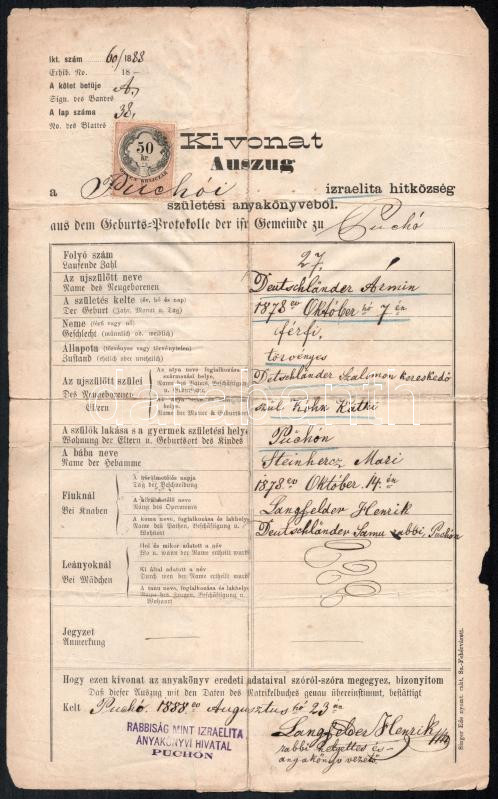 Ikt. szám 60/1888
Exhib. No. 18 –
A kötet betüje A.
Sign. des Bandes
A lap száma 38.
No. des Blattes
50
kr.
Kivonat
Auszug
a Puchói izraelita hitközség
születési anyakönyvéből.
aus dem Geburts-Protokolle der isr. Gemeinde zu Puchó
Folyó szám
Laufende Zahl
27.
Az ujszülött neve
Name des Neugeborenen
Deutschländer Ármin
A születés kelte (év, hó és nap)
Der Geburt (Jahr, Monat u. Tag)
1878 Október hó 7 én
Neme (férfi vagy nő)
Geschlecht (männlich od. weiblich)
férfi.
Állapota (törvényes vagy törvénytelen)
Zustand (ehelich oder unehelich)
törvényes
Az ujszülött szülei
Des Neugeborenen
Eltern
Az atya neve foglalkozása
származási helye.
Name des Vaters, Beschäftigung
Detschländer Szalimon kereskedő
helye.
Name der Mutter & Geburts
szül. Kohn Katki
A szülők lakása s a gyermek születési helye
Wohnung der Eltern u. Geburtsort des Kindes
Puchón
A bába neve
Name der Hebamme
Steinhercz Mari
Fiuknál
Bei Knaben
A körülmetélés napja
Tag der Beschneidung
1878 Október 14. én
A körülmetélő neve
Name des Operateurs
Langfelder Henrik
A koma neve, foglalkozása és lakhelye
Name des Pathen, Beschäftigung u.
Wohnort
Deutschländer Samu rabbi, Puchón
Leányoknál
Bei Mädchen
Hol és mikor adatott a név
Wo u. wann der Name ertheilt wurde
Ki által adatott a név
Durch wen der Name ertheilt wurde
A tanu neve, foglalkozása és lakhelye
Name des Zeugen, Beschäftigung u.
Wohnort
Jegyzet
Anmerkung
Hogy ezen kivonat az anyakönyv eredeti adataival szóról-szóra megegyez, bizonyitom
Daß dieser Auszug mit den Daten des Matrikelbuches genau übereinstimmt, bestättigt
Kelt Puchó 1888 Augusztus hó 23 án
RABBISÁG MINT IZRAELITA
ANYAKÖNYVI HIVATAL
PUCHÓN
Langfelder Henrik
rabbi helyettes és
anyakönyv vezető
Singer Ede nyomt. rakt. Sz.-Fehérvárott.